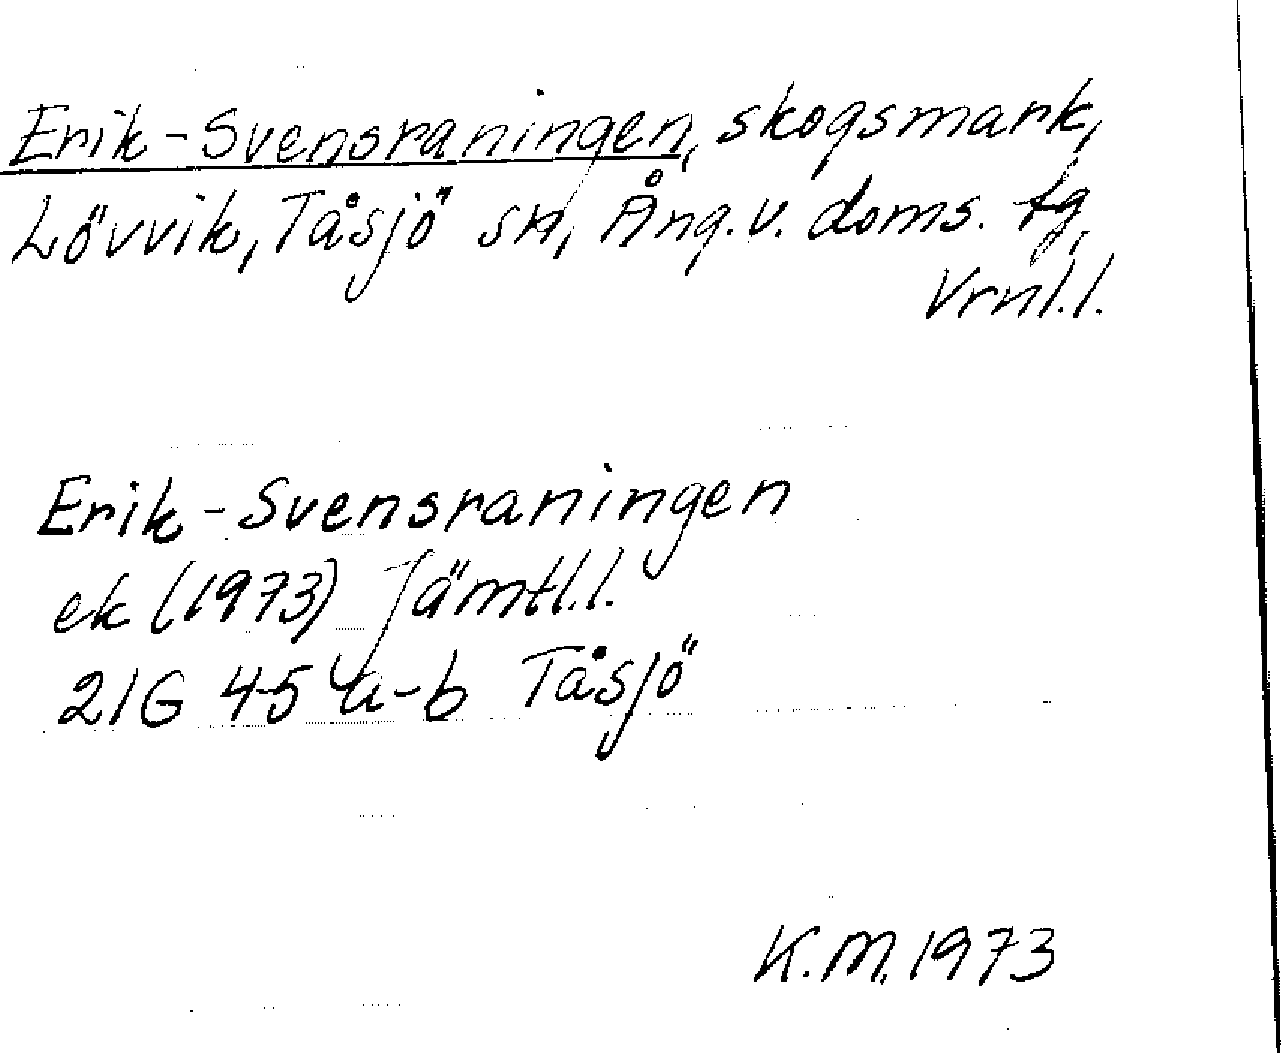 Erik-Svensraningen, skogsmark,
Lövvik, Tåsjö sn, Ång. v. doms. tg,
Vrnl.l.
Erik-Svensraningen
ek (1973) Jämtl.l.
21G 4-5 a-b Tåsjö
K.M. 1973